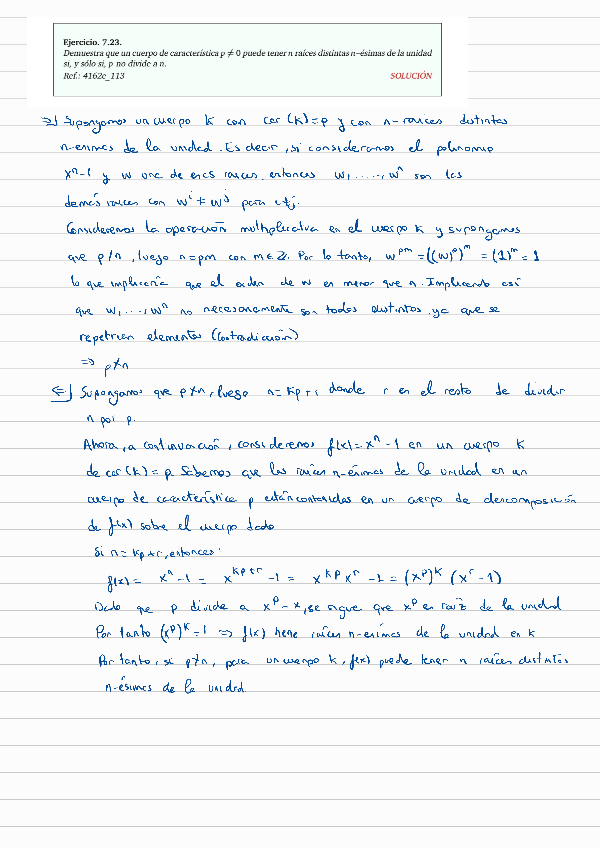 Ejercicio. 7.23.
Demuestra que un cuerpo de característica p ≠ 0 puede tener n raíces distintas n–ésimas de la unidad
si, y sólo si, p no divide a n.
Ref.: 4162e_113 SOLUCIÓN
⇒) Supongamos un cuerpo K con car(K)=p y con n-raíces distintas
n-esimas de la unidad. Es decir, si consideramos el polinomio
xⁿ-1 y w una de esas raíces, entonces w,....,wⁿ son las
demás raíces con wⁱ ≠ wʲ para i≠j.
Consideremos la operación multiplicativa en el cuerpo K y supongamos
que p/n, luego n=pm con m∈ℤ. Por lo tanto, w^pm = ((w)^p)^m = (1)^m = 1
lo que implicaría que el orden de w es menor que n. Implicando así
que w,...,wⁿ no necesariamente son todos distintos, ya que se
repetirían elementos (Contradicción)
⇒ p∤n
⇐) Supongamos que p∤n, luego n=Kp+r donde r es el resto de dividir
n por p.
Ahora, a continuación, consideremos f(x)=xⁿ-1 en un cuerpo K
de car(K)=p. Sabemos que las raíces n-ésimas de la unidad en un
cuerpo de característica p están contenidas en un cuerpo de descomposición
de f(x) sobre el cuerpo dado
Si n=Kp+r, entonces:
f(x) = xⁿ-1 = x^(Kp+r) -1 = x^Kp x^r -1 = (x^p)^K (x^r-1)
Dado que p divide a x^p-x, se sigue que x^p es raíz de la unidad
Por tanto (x^p)^K=1 ⇒ f(x) tiene raíces n-esimas de la unidad en K
Por tanto, si p∤n, para un cuerpo K, f(x) puede tener n raíces distintas
n-ésimas de la unidad.